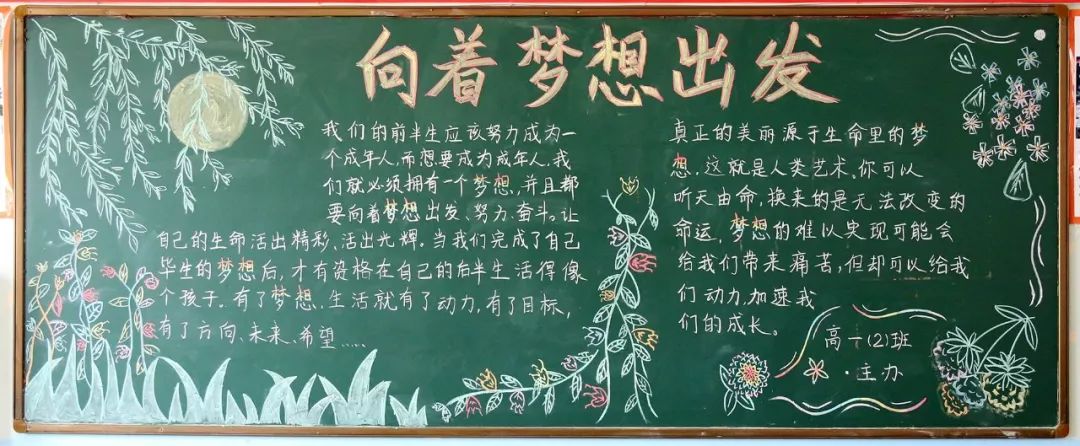 向着梦想出发
我们的前半生应该努力成为一
个成年人，而想要成为成年人，我
们就必须拥有一个梦想，并且都
要向着梦想出发、努力、奋斗。让
自己的生命活出精彩、活出光辉。当我们完成了自己
毕生的梦想后，才有资格在自己的后半生活得像
个孩子。有了梦想，生活就有了动力，有了目标，
有了方向、未来、希望……
真正的美丽源于生命里的梦
想，这就是人类艺术。你可以
听天由命，换来的是无法改变的
命运，梦想的难以实现可能会
给我们带来痛苦，但却可以给我
们动力，加速我
们的成长。
高一(2)班
·主办